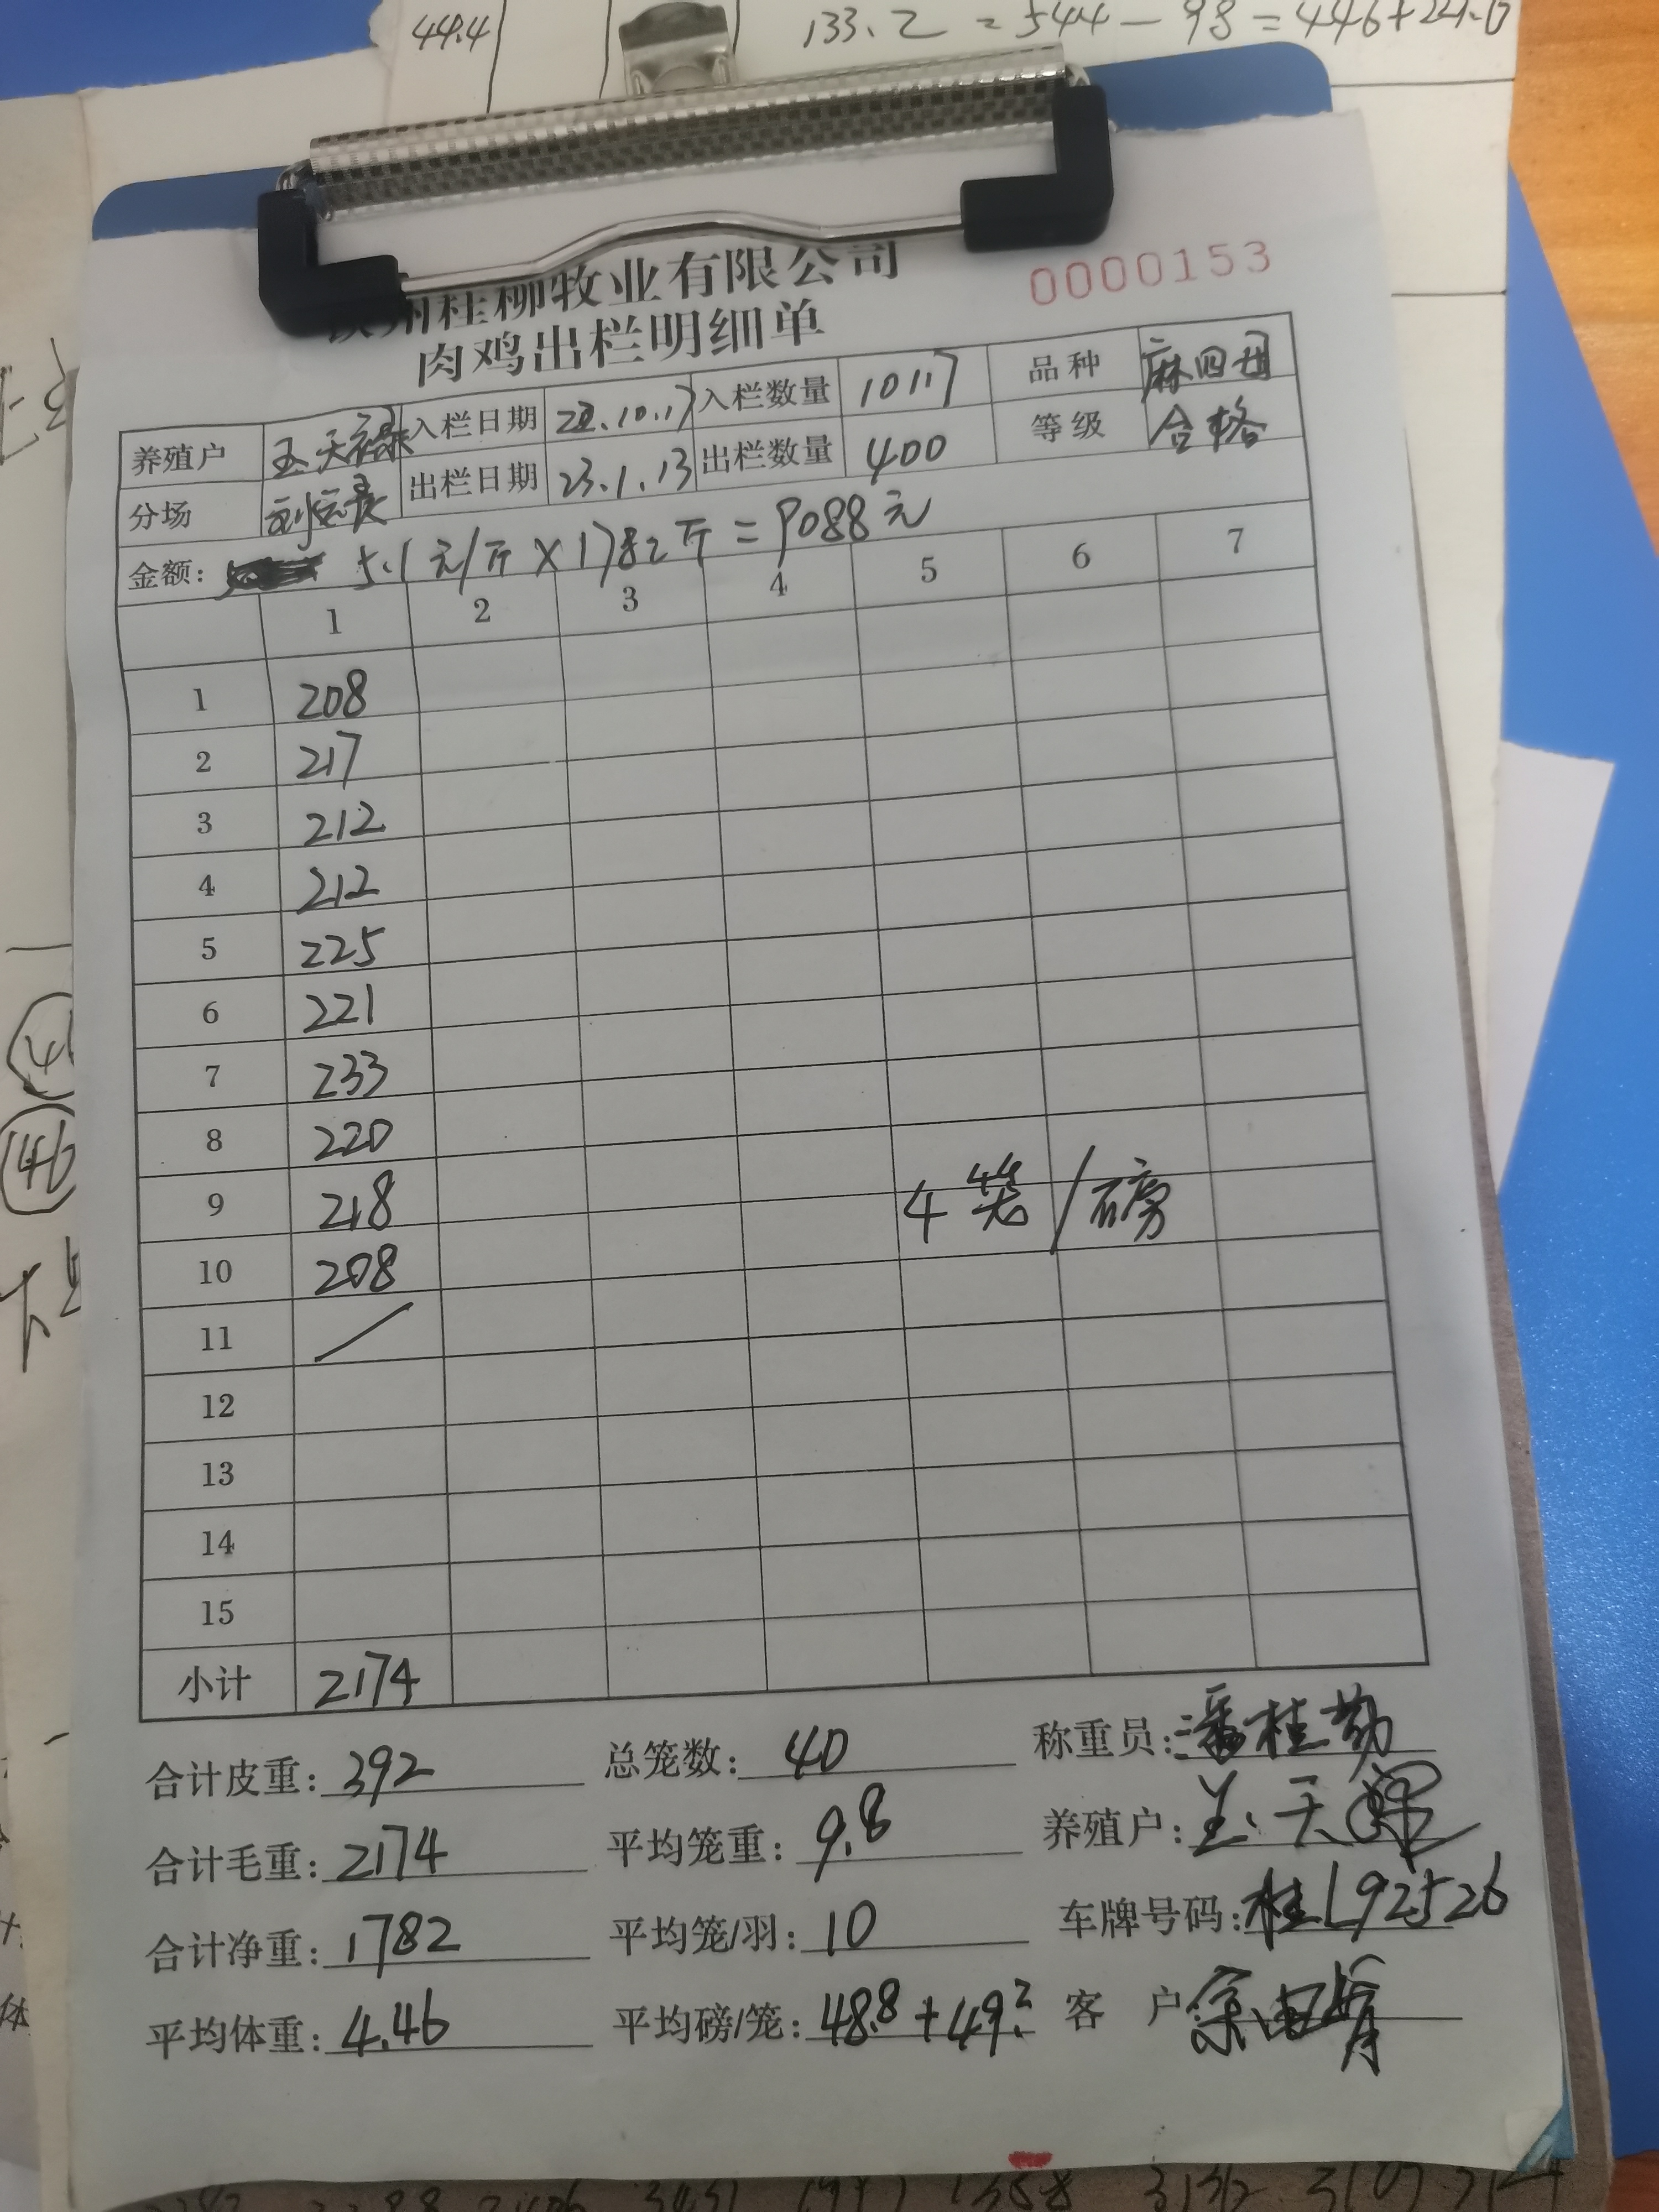 44.4
133.2 = 544 - 98 = 446 +
州桂柳牧业有限公司
0000153
肉鸡出栏明细单
养殖户 玉天禄 入栏日期 22.10.17 入栏数量 10117 品种 麻四
分场 出栏日期 23.1.13 出栏数量 400 等级 合格
金额: 5.1元/斤×1782斤=9088元
1 2 3 4 5 6 7
1 208
2 217
3 212
4 212
5 225
6 221
7 233
8 220
9 218 4笼/磅
10 208
11 /
12
13
14
15
小计 2174
合计皮重: 392 总笼数: 40 称重员: 潘桂勤
合计毛重: 2174 平均笼重: 9.8 养殖户: 玉天禄
合计净重: 1782 平均笼/羽: 10 车牌号码: 桂L92526
平均体重: 4.46 平均磅/笼: 48.8+49.2 客 户